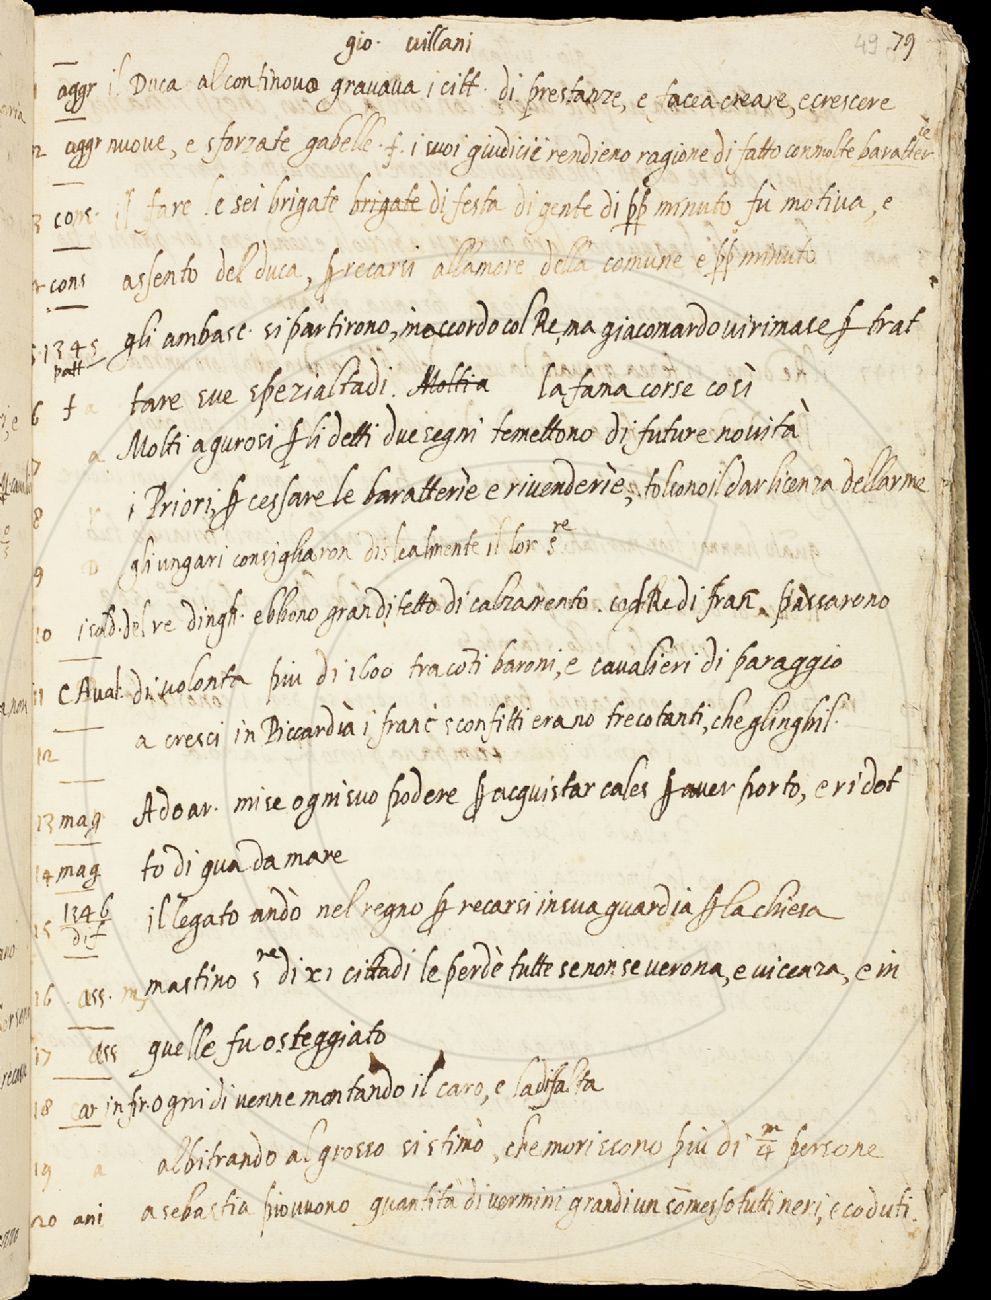 gio. villani 49 79
aggr il Duca al continovo gravava i citt. di prestanze, e facea creare, e crescere
2 aggr nuove, e sforzate gabelle. f. i suoi giudicii rendieno ragione di fatto con molte baratterie
3 cons. il fare le sei brigate brigate di festa di gente di pp minuto fù motiva, e
cons assento del duca, p recarsi all amore della comune e pp minuto
5. 1345 gli ambasc. si partirono, in accordo col Re, ma giacomardo vi rimase p trat
patt
6 f a tare sue spezialtadi. Moltia la fana corse così
7 a Molti agurosi p li detti due segni temettono di future novità
8 i Priori, p cessare le baratterie e rivenderie, tolsono il dar licenza dell arme
9 gli ungari consigliaron dislealmente il lor s.re
10 i sold. del re dingh. ebbono grandifetto di calzamento. col Re di fran. passarono
11 CAval. di volonta piu di 1600 tra coti baroni, e cavalieri di paraggio
12 a cresci in Piccardia i franc sconfitti erano trecotanti, che glinghil.
13 mag Adoar. mise ogni suo podere p acquistar cales p aver porto, e ridot
14 mag to di guadamare
15 1346 dif il legato andò nel regno p recarsi in sua guardia p la chiesa
16 ass. mastino s.re di xi cittadi le perdè tutte se non se verona, e vicenza, e in
17 ass quelle fu osteggiato
18 car in fir. ogni di venne montando il caro, e la difalta
19 a albitrando al grosso si stimò, che morissono più di 4 m persone
20 ani a sebastia piovvono quantità di vermini grandi un somesso tutti neri, e coduti.